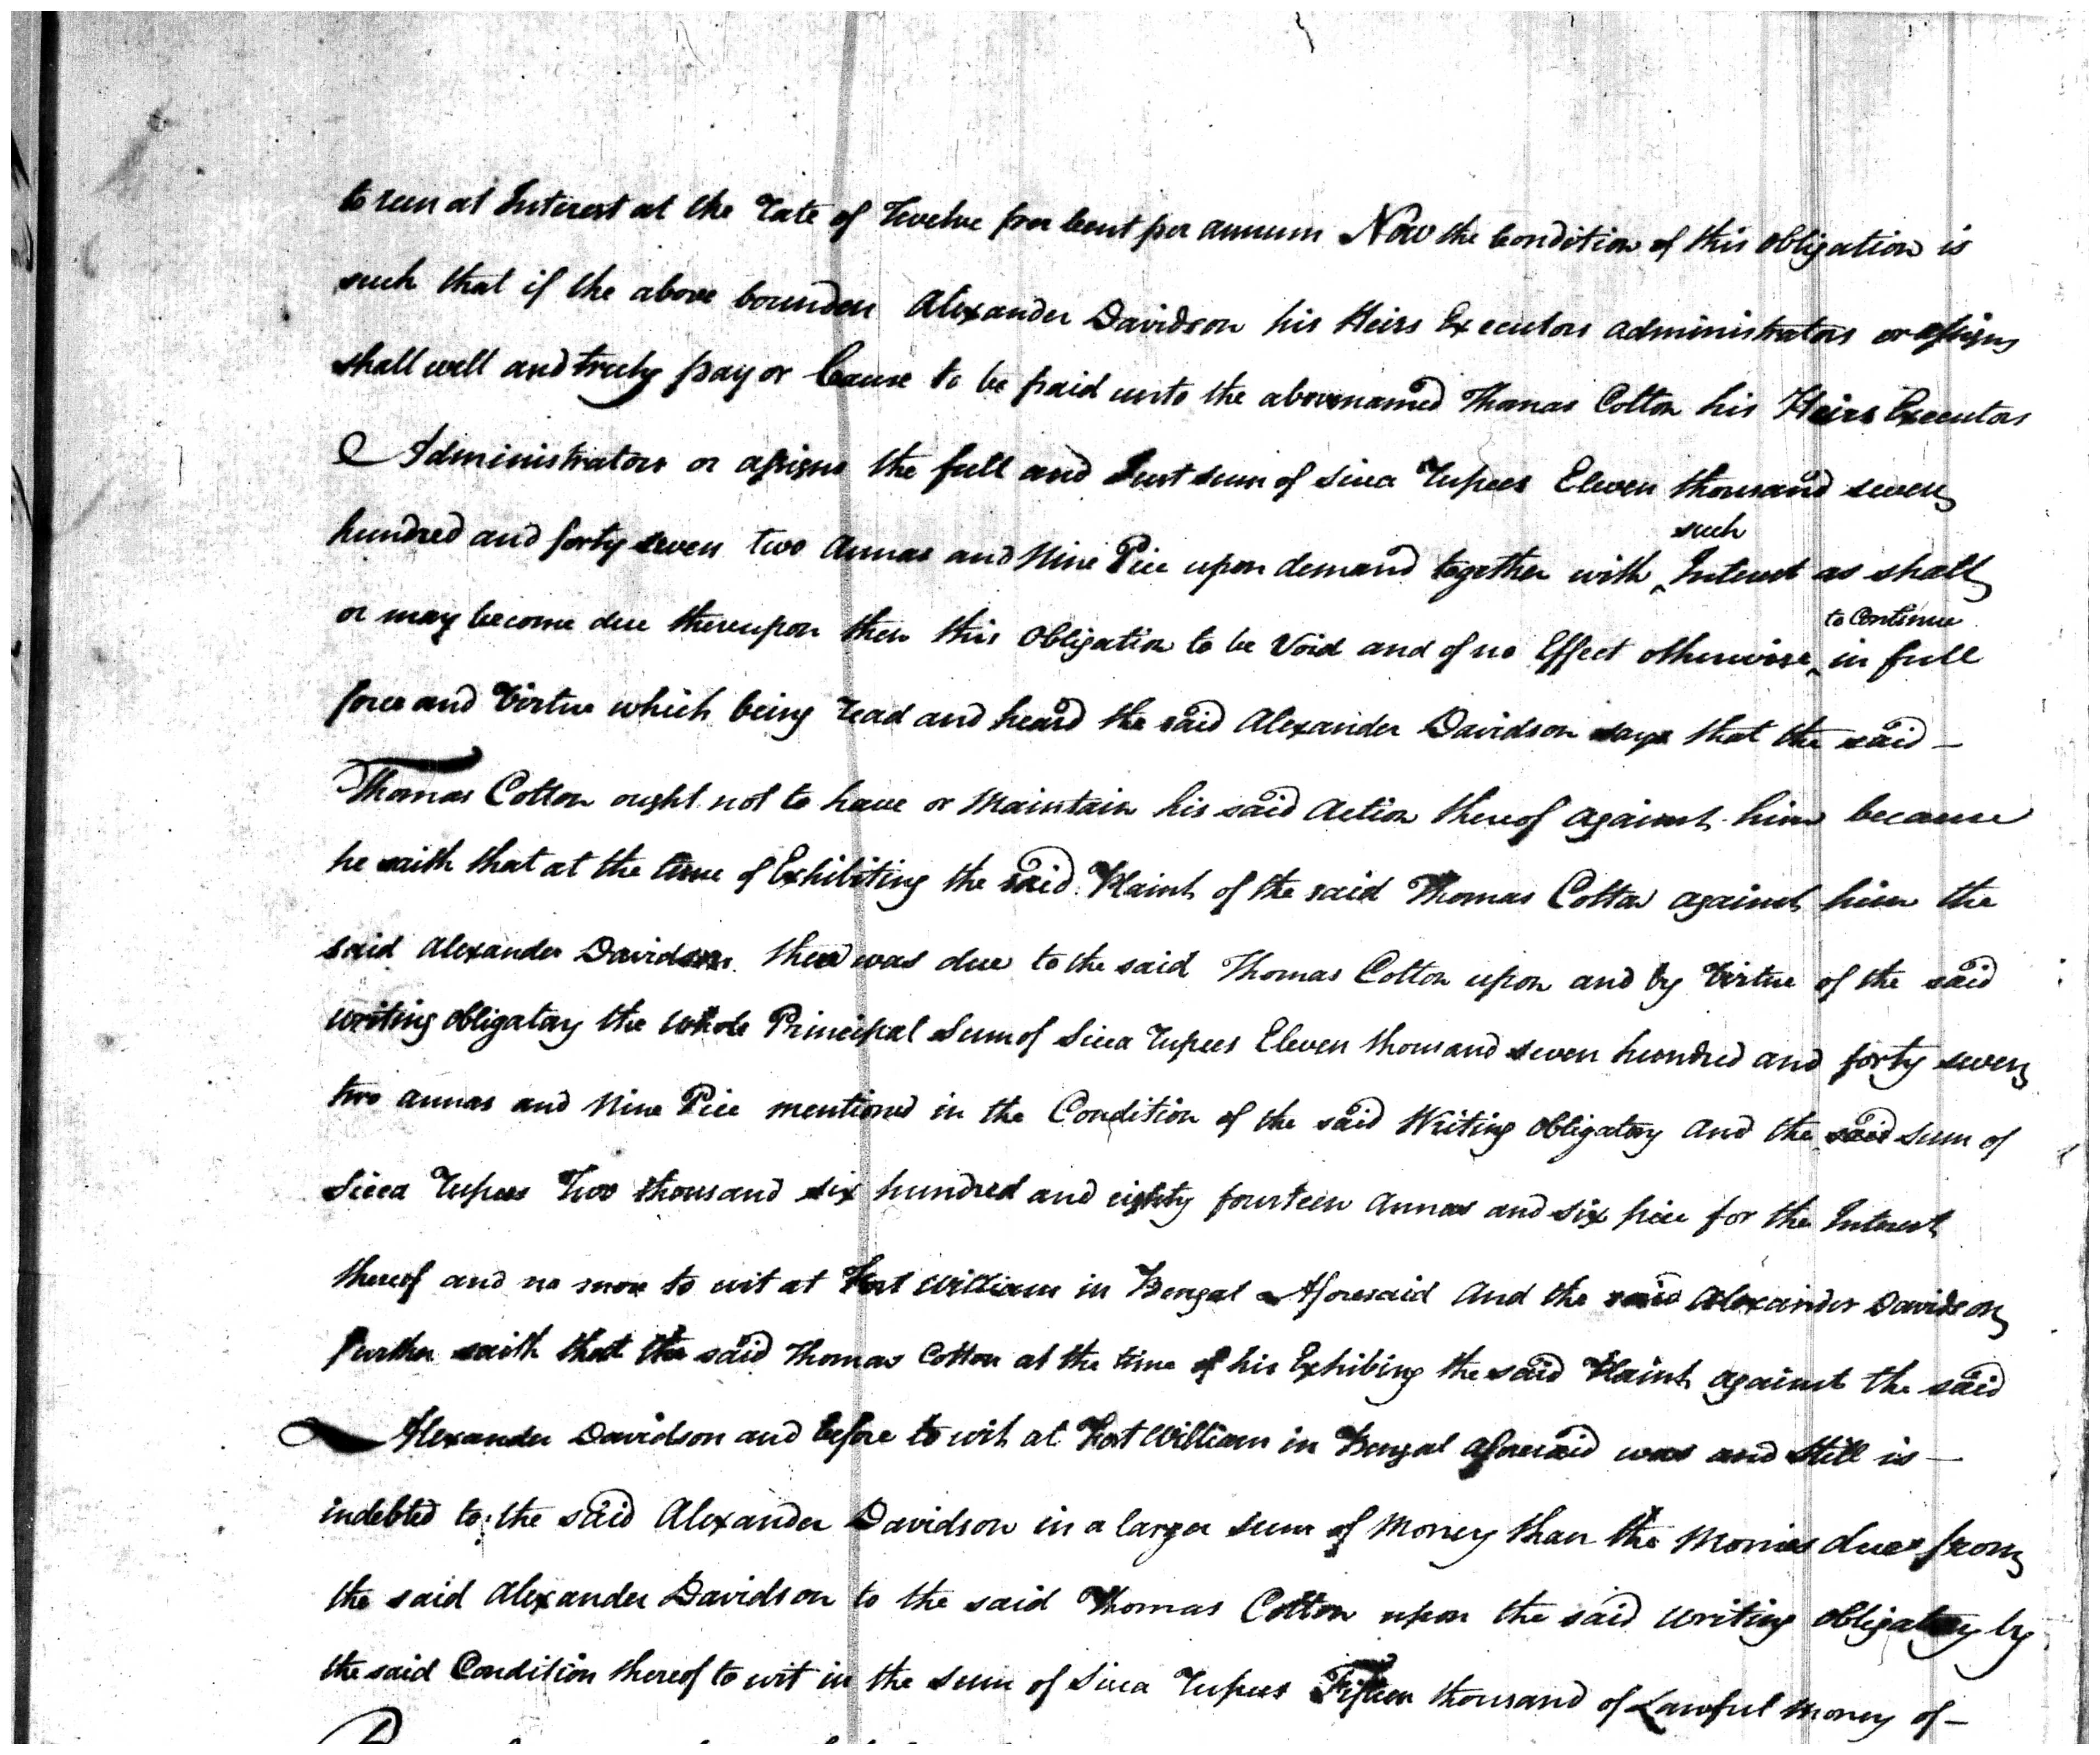 to run at Interest at the rate of Twelve per Cent per annum Now the Condition of this obligation is
such that if the above bounden Alexander Davidson his Heirs Executors administrators or assigns
shall well and truly pay or Cause to be paid unto the abovenamed Thomas Cotton his Heirs Executors
Administrators or assigns the full and Just sum of Sicca Rupees Eleven thousand seven
hundred and forty seven two annas and Nine Pice upon demand together with ^such Interest as shall
or may become due thereupon then this obligation to be Void and of no Effect otherwise ^to Continue in full
force and Virtue which being read and heard the said Alexander Davidson says that the said —
Thomas Cotton ought not to have or Maintain his said Action thereof against him because
he saith that at the time of Exhibiting the said Plaint of the said Thomas Cotton against him the
said Alexander Davidson there was due to the said Thomas Cotton upon and by Virtue of the said
writing obligatory the whole Principal Sum of Sicca Rupees Eleven thousand seven hundred and forty seven
two annas and Nine Pice mentioned in the Condition of the said Writing obligatory and the said sum of
Sicca Rupees Two thousand six hundred and eighty fourteen Annas and six pice for the Interest
thereof and no more to wit at Fort William in Bengal Aforesaid And the said Alexander Davidson
further saith that the said Thomas Cotton at the time of his Exhibing the said Plaint against the said
Alexander Davidson and before to wit at Fort William in Bengal aforesaid was and still is —
indebted to the said Alexander Davidson in a larger sum of Money than the Monies due from
the said Alexander Davidson to the said Thomas Cotton upon the said writing obligatory by
the said Condition thereof to wit in the sum of Sicca Rupees Fifteen thousand of Lawful money of —